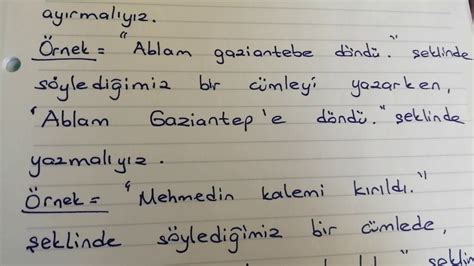 ayırmalıyız.
Örnek = "Ablam gaziantebe döndü." şeklinde
söylediğimiz bir cümleyi yazarken,
"Ablam Gaziantep'e döndü." şeklinde
yazmalıyız.
Örnek = "Mehmedin kalemi kırıldı."
şeklinde söylediğimiz bir cümlede,